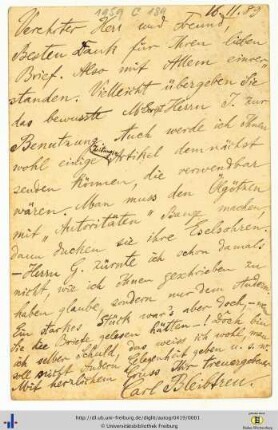 1959 C 180
16. 11. 89
Verehrter Herr und Freund,
Besten Dank für Ihren lieben
Brief. Also mit Allem einver-
standen. Vielleicht übergeben Sie
das bewusste Herrn J. zur
Benutzung. Auch werde ich Ihnen
wohl einige Artikel demnächst
senden können, die verwendbar
wären. Man muss den
mit „Autoritäten“ Bange machen,
dann ducken sie ihre Eselsohren.
– Herrn G. zürnte ich schon damals
nicht, wie ich Ihnen geschrieben zu
haben glaube, sondern nur dem
Ein starkes Stück war's aber doch,
Sie die Briefe gelesen hätten! Doch bin
ich selber Schuld, das weiss ich wohl, man
soll nicht Andern Gelegenheit geben u. s. w.
Mit herzlichem Gruss Ihr treuergebener
Carl Bleibtreu.
http://dl.ub.uni-freiburg.de/diglit/autogr0419/0001
© Universitätsbibliothek Freiburg